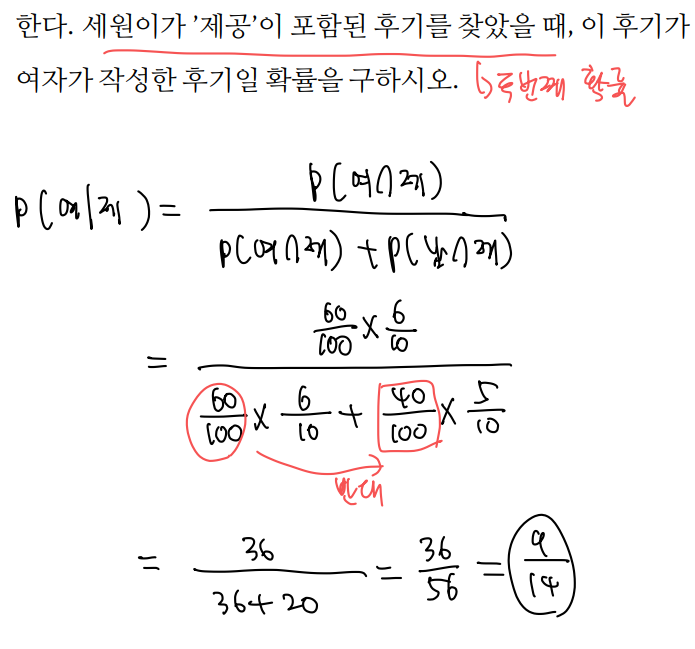 한다. 세원이가 '제공'이 포함된 후기를 찾았을 때, 이 후기가
여자가 작성한 후기일 확률을 구하시오. ↳두번째 확률
P(여|제) = P(여∩제) / P(여∩제) + P(남∩제)
= 60/100 × 6/10 / 60/100 × 6/10 + 40/100 × 5/10
반대
= 36 / 36+20 = 36/56 = 9/14